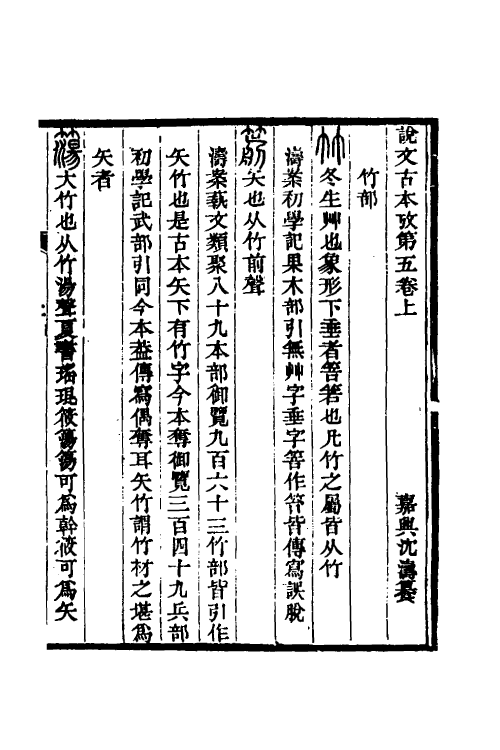 說文古本攷第五卷上
嘉興沈濤纂
竹部
竹冬生艸也象形下垂者箁箬也凡竹之屬皆从竹
濤案初學記果木部引無艸字垂字箁作笞皆傳寫誤脫
箭矢也从竹前聲
濤案藝文類聚八十九木部御覽九百六十三竹部皆引作
矢竹也是古本矢下有竹字今本奪御覽三百四十九兵部
初學記武部引同今本葢傳寫偶奪耳矢竹謂竹材之堪爲
矢者
簜大竹也从竹湯聲夏書瑤琨筱簜簜可爲幹筱可爲矢